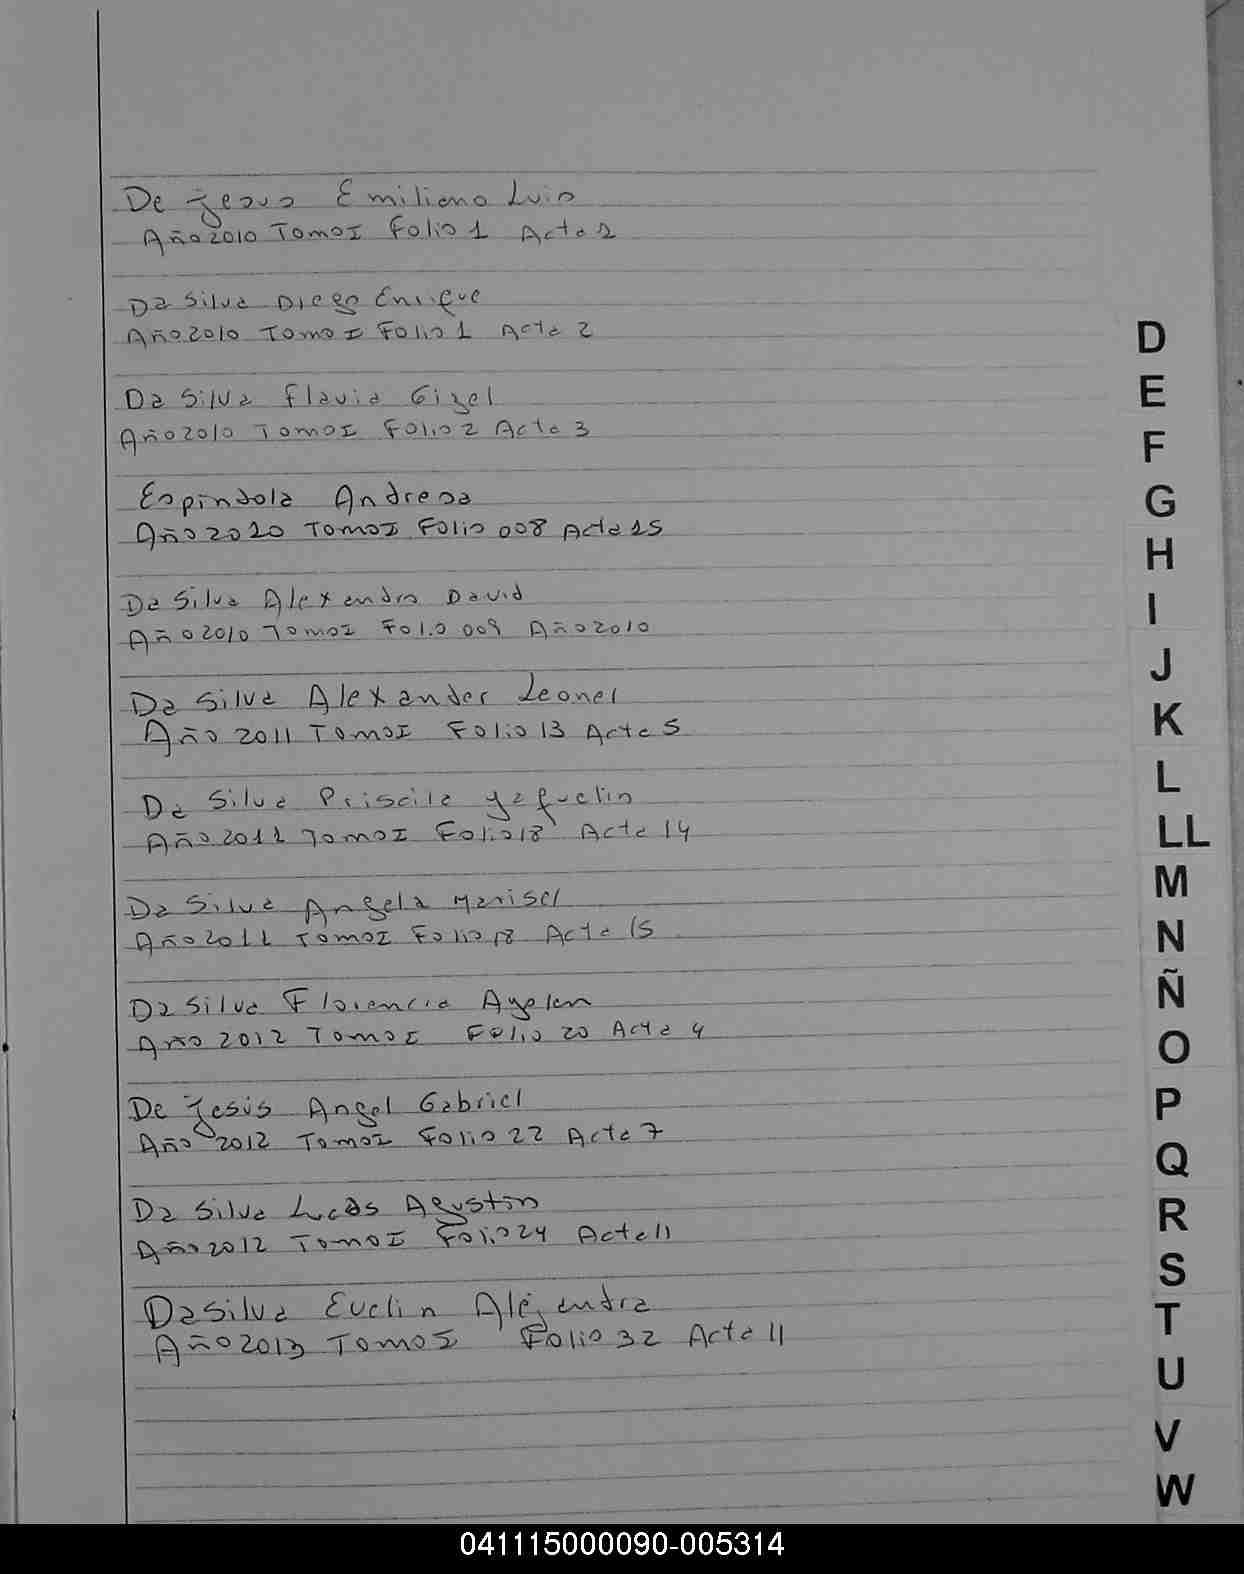 De Jesus Emiliano Luis
Año 2010 Tomo I Folio 1 Acta 1
Da Silva Diego Enrique
Año 2010 Tomo I Folio 1 Acta 2
Da Silva Flavia Gizel
Año 2010 Tomo I Folio 2 Acta 3
Espindola Andresa
Año 2010 Tomo I Folio 008 Acta 15
Da Silva Alexandro David
Año 2010 Tomo I Folio 009 Año 2010
Da Silva Alexander Leonel
Año 2011 Tomo I Folio 13 Acta 5
Da Silva Priscila Yaquelin
Año 2011 Tomo I Folio 18 Acta 14
Da Silva Angela Marisel
Año 2011 Tomo I Folio 18 Acta 15
Da Silva Florencia Ayelen
Año 2012 Tomo I Folio 20 Acta 4
De Jesús Angel Gabriel
Año 2012 Tomo I Folio 22 Acta 7
Da Silva Lucas Agustin
Año 2012 Tomo I Folio 24 Acta 11
Da Silva Evelin Alejandra
Año 2013 Tomo I Folio 32 Acta 11
D
E
F
G
H
I
J
K
L
LL
M
N
Ñ
O
P
Q
R
S
T
U
V
W
041115000090-005314